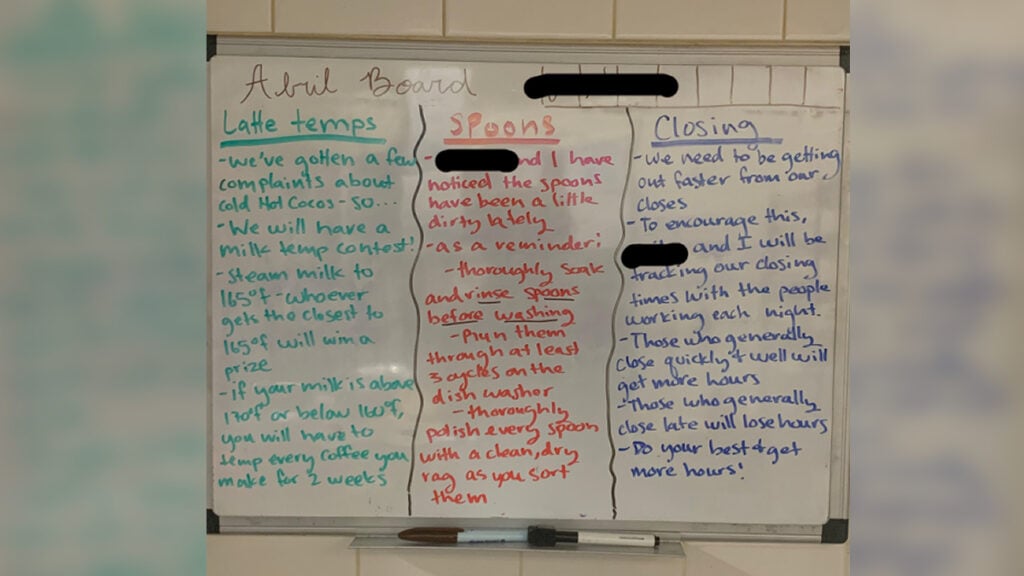 Abril Board
Latte temps
-we've gotten a few
complaints about
cold Hot Cocos - so...
-We will have a
milk temp contest!
-Steam milk to
165°f - whoever
gets the closest to
165°f will win a
prize
-if your milk is above
170°f or below 160°f,
you will have to
temp every coffee you
make for 2 weeks
Spoons
- nd I have
noticed the spoons
have been a little
dirty lately
-as a reminder:
-thoroughly soak
and rinse spoons
before washing
-Run them
through at least
3 cycles on the
dish washer
-thoroughly
polish every spoon
with a clean, dry
rag as you sort
them
Closing
-We need to be getting
out faster from our
closes
-To encourage this,
and I will be
tracking our closing
times with the people
working each night.
-Those who generally
close quickly + well will
get more hours
-Those who generally
close late will lose hours
-Do your best + get
more hours!